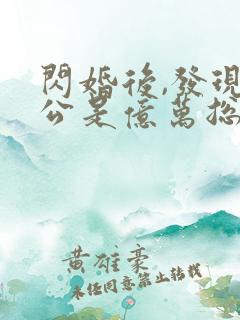 閃婚後,發現
公是億萬總
黃雄豪
未經同意禁止轉載